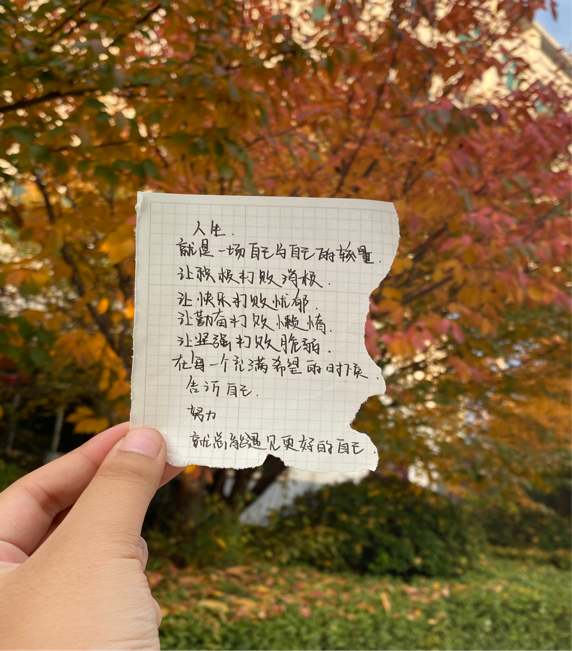 人生.
就是一场自己与自己的较量.
让积极打败消极.
让快乐打败忧郁.
让勤奋打败懒惰.
让坚强打败脆弱.
在每一个充满希望的日子里.
告诉自己.
努力
就总能遇见更好的自己.